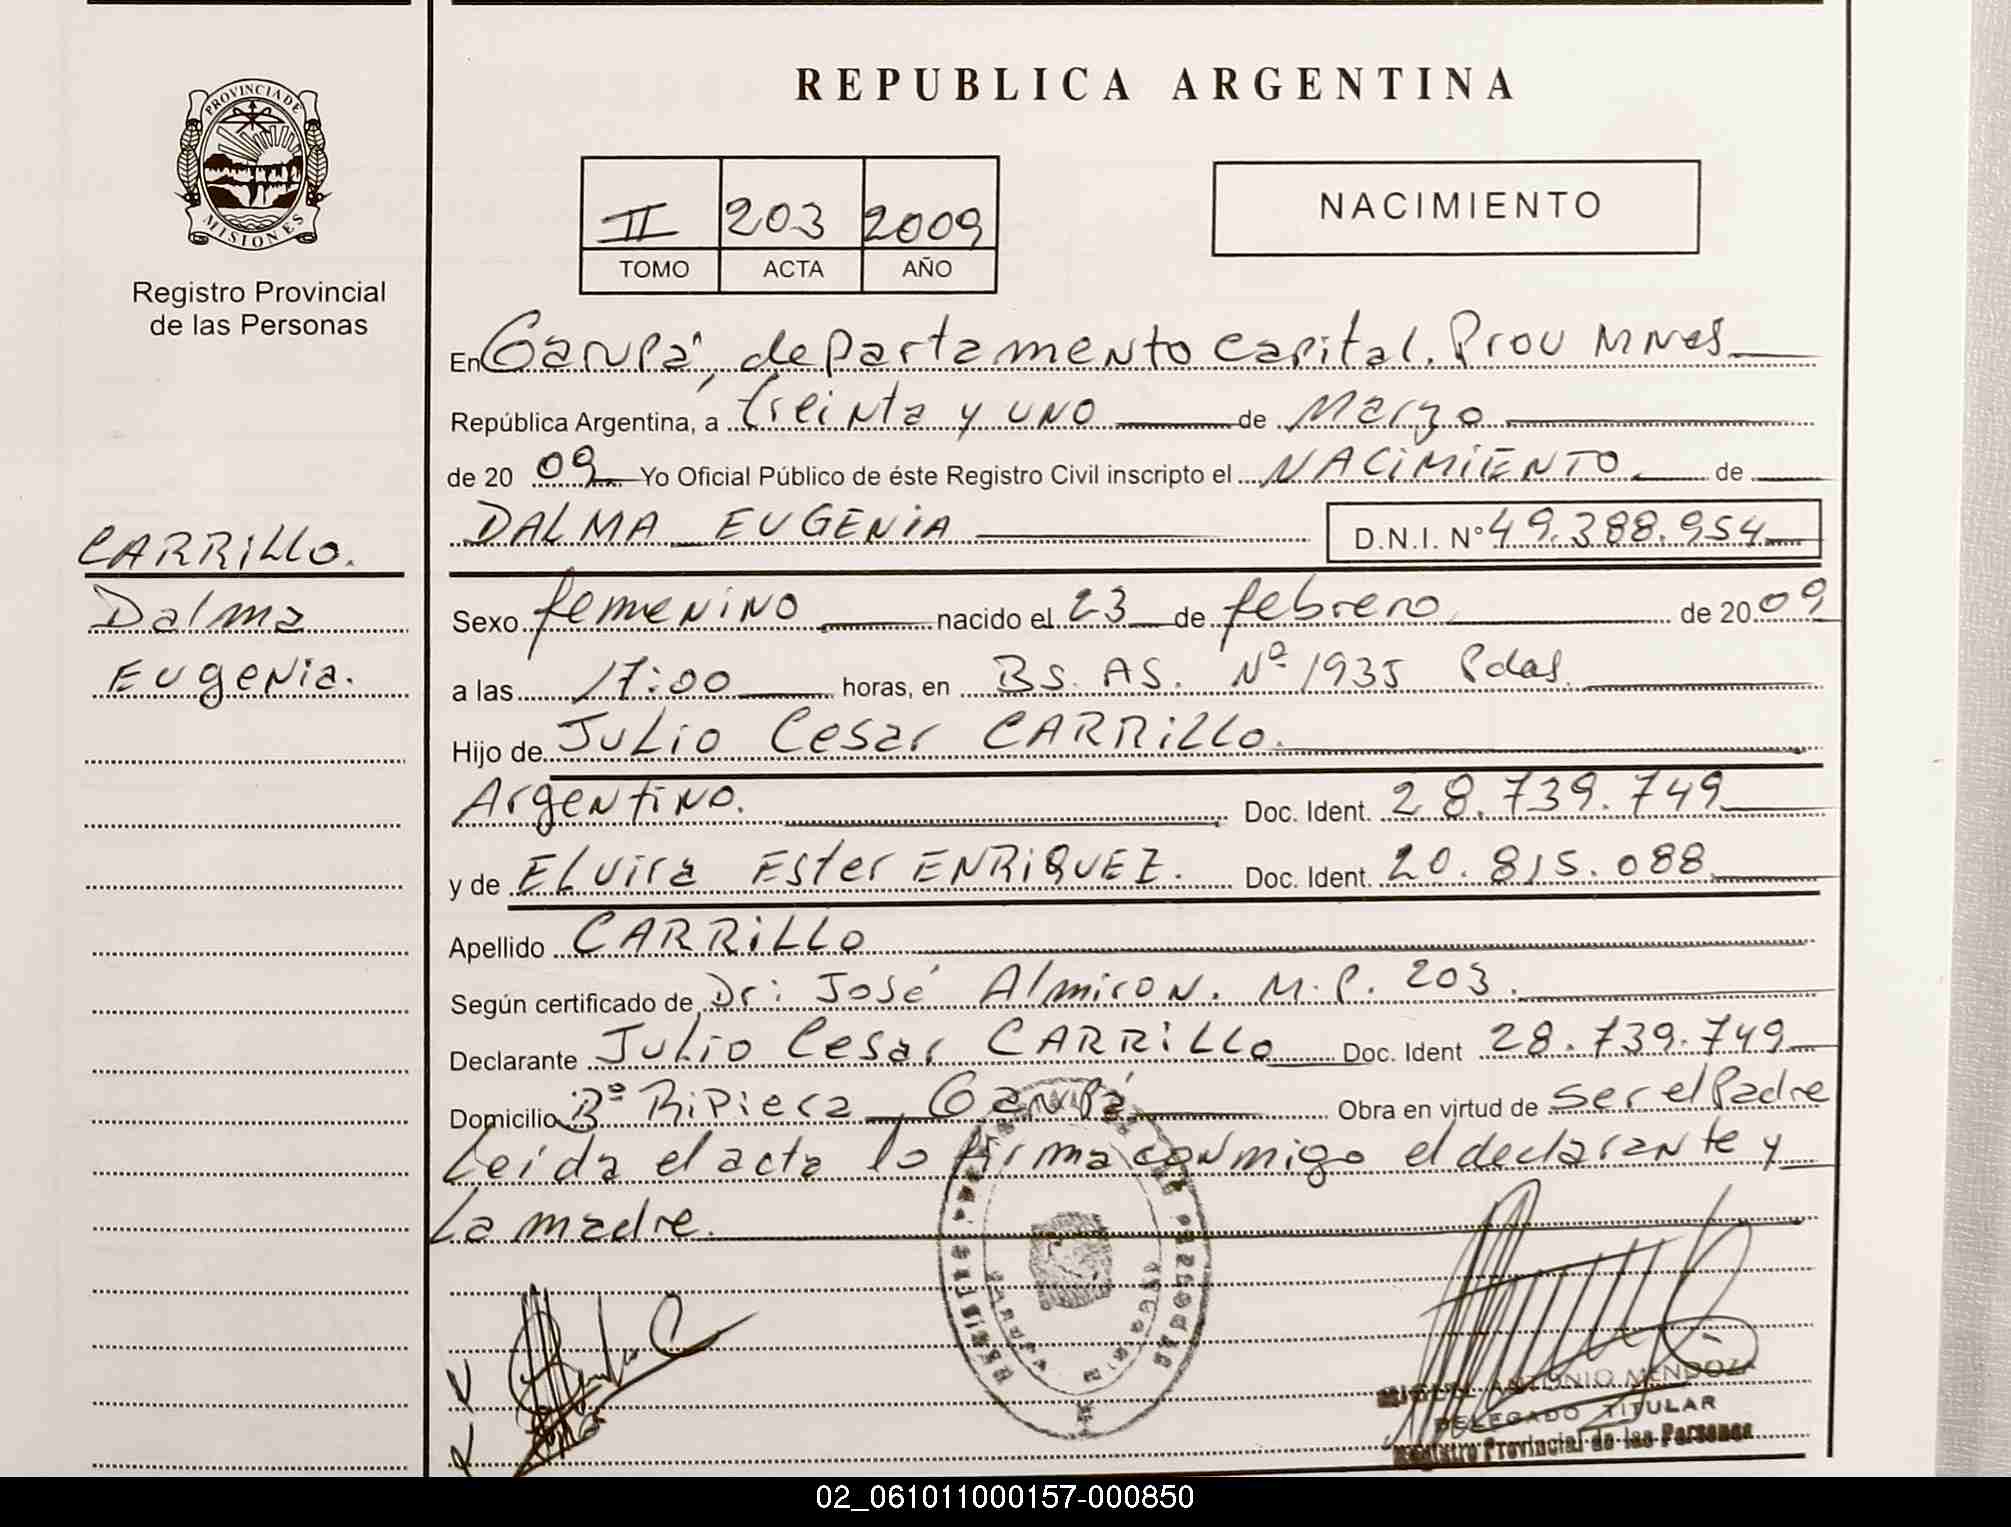 REPUBLICA ARGENTINA
PROVINCIA DE
MISIONES
Registro Provincial
de las Personas
II 203 2009
TOMO ACTA AÑO
NACIMIENTO
En Garupá, departamento Capital. Prov Mnes
República Argentina, a treinta y uno de Marzo
de 2009 Yo Oficial Público de éste Registro Civil inscripto el NACIMIENTO de
DALMA EUGENIA D.N.I. N° 49.388.954
CARRILLO.
Dalma
Eugenia.
Sexo femenino nacido el 23 de febrero de 2009
a las 17:00 horas, en Bs. AS. Nº 1935 Pdas.
Hijo de Julio Cesar CARRILLO.
Argentino. Doc. Ident. 28.739.749
y de Elvira Ester ENRIQUEZ. Doc. Ident. 20.815.088
Apellido CARRILLO
Según certificado de Dr: José Almiron. M.P. 203.
Declarante Julio Cesar CARRILLO Doc. Ident 28.739.749
Domicilio Bº Ripiera Garupá Obra en virtud de ser el Padre
Leida el acta lo firma conmigo el declarante y
La madre.
MIGUEL ANTONIO MENDOZA
DELEGADO TITULAR
Registro Provincial de las Personas
02_061011000157-000850